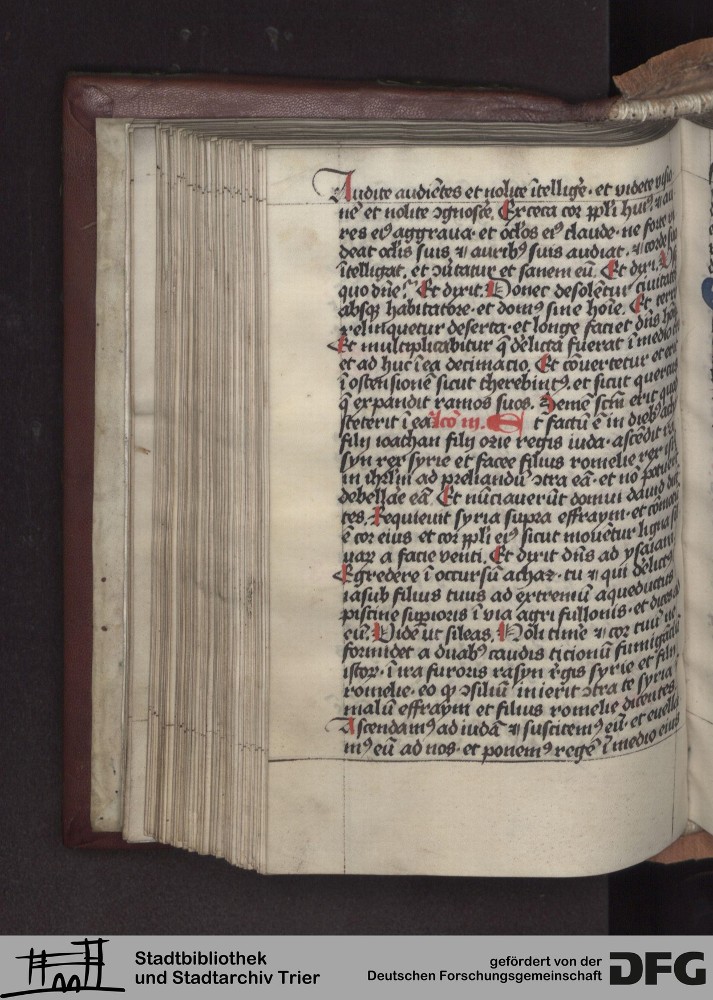 Audite audiētes et nolite ītellige᷒· et videte visio
nē et nolite ꝯgnosce᷒. Exceca cor ppl̄i huiꝰ ⁊ au
res eiꝰ aggraua· et ocl̄os eiꝰ claude· ne forte vi
deat ocl̄is suis ⁊ auribꝰ suis audiat· ⁊ corde suo
ītelligat, et ꝯūtatur et sanem eū. Et dixi. Vsq̄
quo dn̄e? Et dixit. Donec desolētur ciuitates
absqꝫ habitatore· et domꝰ sine hoīe. Et terra
relinquetur deserta· et longe faciet dn̄s hoīes
Et multiplicabitur q̄ delicta fuerat ī medio
et ad huc ī ea decimatio. Et cōuertetur et erit
ī ostensionē sicut therebintꝰ· et sicut quercus
q̄ expandit ramos suos. Semē sctm̄ erit quod
steterit ī ea Lc̄o iij. Et factū ē in diebꝰ achaz
filij ioathan filij ozie regis iuda· ascēdit ra
syn rex syrie et facee filius romelie rex isrl̄
in ihrl̄m ad preliandū ꝯtra eā· et nō potuerūt
debellare eā. Et nūciauerūt domui dauid dicē
tes. Requieuit syria supra effraym· et cōmotū
ē cor eius et cor ppl̄i eiꝰ sicut mouētur ligna sil
uaꝝ a facie venti. Et dixit dn̄s ad ysaiam
Egredere ī occursū achaz· tu ⁊ qui delictꝰ
iasub filius tuus ad extremū aqueductus
piscine supioris ī via agri fullonis· et dices ad
eū. Vide ut sileas. Noli time᷒ ⁊ cor tuū ne
formidet a duabꝰ caudis ticionū fumigātiū
istoꝝ· ī ira furoris rasyn r̄gis syrie et filij
romelie· eo ꝙ ꝯsiliū inierit ꝯtra te syria ī
malū effraym et filius romelie dicentes.
Ascendamꝰ ad iudā ⁊ suscitemꝰ eū· et euella
mꝰ eū ad nos· et ponemꝰ regē ī medio eius
Stadtbibliothek
und Stadtarchiv Trier
gefördert von der
Deutschen Forschungsgemeinschaft
DFG